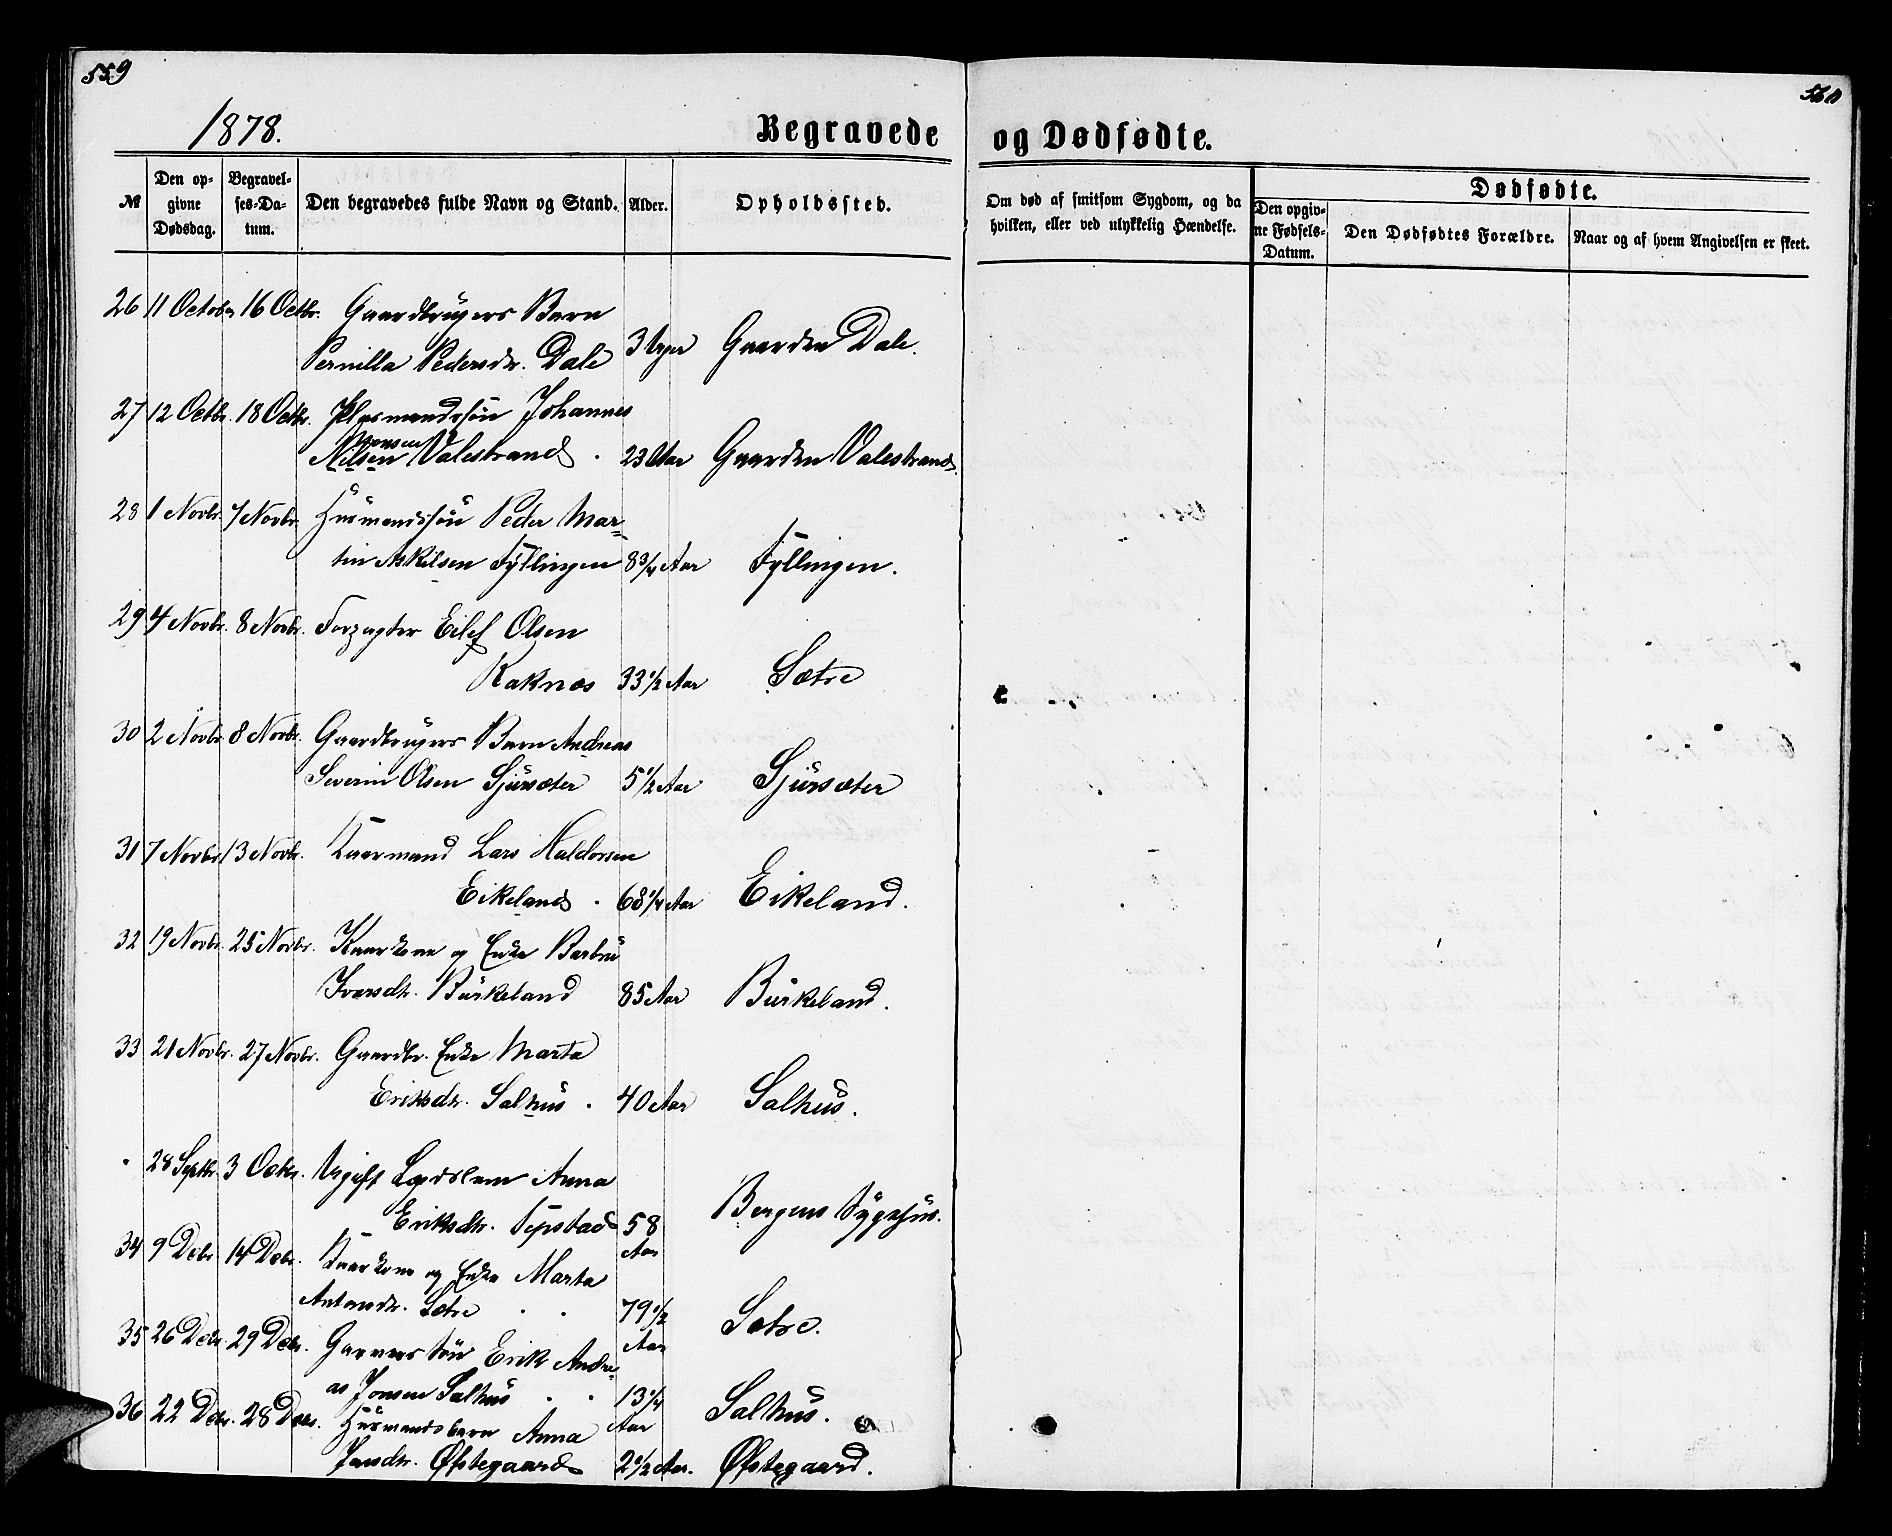 559
560
1878.
Begravede og Dødfødte.
№
Den opgivne Dødsdag.
Begravelses-Datum.
Den begravedes fulde Navn og Stand.
Alder.
Opholdssted.
Om død af smitsom Sygdom, og da hvilken, eller ved ulykkelig Hændelse.
Dødfødte.
Den opgivne Fødsels-Datum.
Den Dødfødtes Forældre.
Naar og af hvem Angivelsen er skeet.
26 11 October 16 Octbr. Gaardbrugers Barn
Pernilla Pedersdr. Dale 3 Uger Gaarden Dale.
27 12 Octbr. 18 Octbr. Plasmandssøn Johannes
Monsen
Nilsen Valestrand . 23 Aar Gaarden Valestrand.
28 1 Novbr. 7 Novbr. Husmandssøn Peder Mar=
tin Askilsen Fyllingen 8 3/4 Aar Fyllingen.
29 4 Novbr. 8 Novbr. Forpagter Eilef Olsen
Raknæs 33 1/2 Aar Sætre
30 2 Novbr. 8 Novbr. Gaardbrugers Barn Andreas
Severin Olsen Sjursæter 5 1/2 Aar Sjursæter
31 7 Novbr. 13 Novbr. Kaarmand Lars Haldorsen
Eikeland . 68 1/4 Aar Eikeland.
32 19 Novbr. 25 Novbr. Kaarkone og Enke Barbru
Iversdtr. Burkeland 85 Aar Burkeland.
33 21 Novbr. 27 Novbr. Gaardbr. Enke Marta
Eriksdtr. Salhus . 40 Aar Salhus.
28 Septbr. 3 Octbr. Ugift Lægdslem Anna
Eriksdtr. 58 Aar Bergens Sygehus.
34 9 Debr. 14 Debr. Kaarkone og Enke Marta
Antonsdr. Sætre . . 79 1/2 Aar Sætre.
35 26 Debr. 29 Debr. Garvers Søn Erik Andre=
as Jonsen Salhus . . 13 1/4 Aar Salhus.
36 22 Debr. 28 Debr. Husmandsbarn Anna
Jansdtr. Øfstegaard 2 1/2 Aar. Øfstegaard.